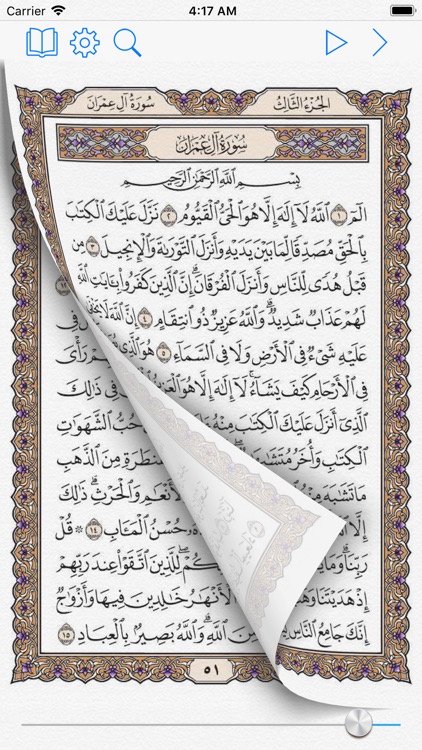 Carrier 4:17 AM
الجُزْءُ الثَّالِثُ سُورَةُ آلِ عِمْرَانَ
سُورَةُ آلِ عِمْرَانَ
بِسْمِ ٱللَّهِ ٱلرَّحْمَٰنِ ٱلرَّحِيمِ
الٓمٓ ١ ٱللَّهُ لَآ إِلَٰهَ إِلَّا هُوَ ٱلْحَىُّ ٱلْقَيُّومُ ٢ نَزَّلَ عَلَيْكَ ٱلْكِتَٰبَ
بِٱلْحَقِّ مُصَدِّقًا لِّمَا بَيْنَ يَدَيْهِ وَأَنزَلَ ٱلتَّوْرَىٰةَ وَٱلْإِنجِيلَ ٣ مِن
قَبْلُ هُدًى لِّلنَّاسِ وَأَنزَلَ ٱلْفُرْقَانَ ۗ إِنَّ ٱلَّذِينَ كَفَرُوا۟ بِـَٔايَٰتِ ٱللَّهِ
لَهُمْ عَذَابٌ شَدِيدٌ ۗ وَٱللَّهُ عَزِيزٌ ذُو ٱنتِقَامٍ ٤ إِنَّ ٱللَّهَ لَا يَخْفَىٰ
عَلَيْهِ شَىْءٌ فِى ٱلْأَرْضِ وَلَا فِى ٱلسَّمَآءِ ٥ هُوَ ٱلَّذِى رَأْىَ
فِى ٱلْأَرْحَامِ كَيْفَ يَشَآءُ ۚ لَآ إِلَٰهَ إِلَّا هُوَ فِى ذَٰلِكَ
ٱلَّذِىٓ أَنزَلَ عَلَيْكَ ٱلْكِتَٰبَ مِنْهُ حُبُّ ٱلشَّهَوَٰتِ
ٱلْكِتَٰبِ وَأُخَرُ مِنَ ٱلذَّهَبِ
مَا تَشَٰبَهَ وَٱلْحَرْثِ ۗ ذَٰلِكَ
حُسْنُ ٱلْمَـَٔابِ ١٤ ۞ قُلْ
رَبِّنَا لِلَّذِينَ ٱتَّقَوْا۟ عِندَ رَبِّهِمْ
إِذْ هَدَيْتَنَا خَٰلِدِينَ فِيهَا وَأَزْوَٰجٌ
إِنَّكَ جَامِعُ ٱلنَّاسِ ٱللَّهِ ۗ وَٱللَّهُ بَصِيرٌۢ بِٱلْعِبَادِ ١٥
٥١